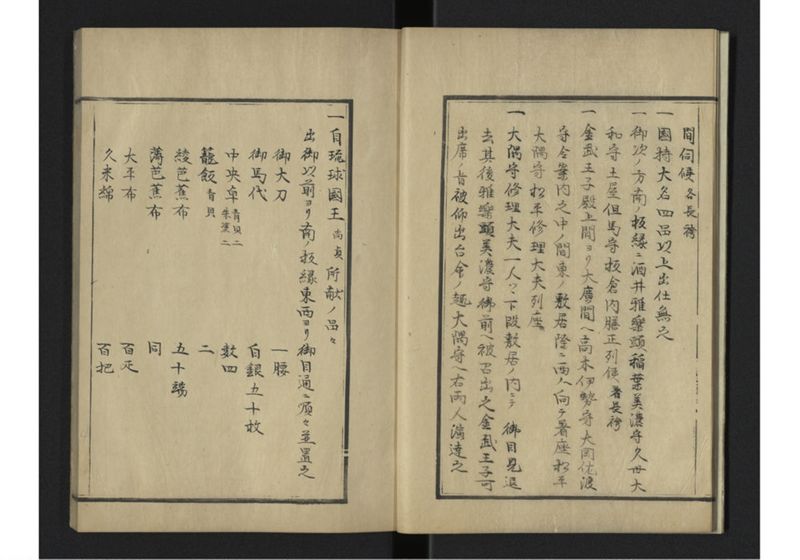 間伺候各長袴
一國持大名四品以上出仕無之
一御次ノ方南ノ板縁ニ酒井雅樂頭稲葉美濃守久世大
和守土屋但馬守板倉内膳正列侯著長袴
一金武王子殿上間ヨリ大廣間ヘ高木伊勢守大岡佐渡
守令案内之中ノ間東ノ敷居際ニ西ヘ向テ著座松平
大隅守松平修理大夫列座
一大隅守修理大夫一人ツヽ下段敷居ノ内ニテ御目見退
去其後雅樂頭美濃守御前ヘ被召出之金武王子可
出席ノ旨被仰出台命ノ趣大隅守ヘ右両人演達之
一自琉球國王尚貞所献ノ品々
出御以前ヨリ南ノ板縁東西ヨリ御目通ニ順々並置之
御太刀 一腰
御馬代 白銀五十枚
中央卓青貝二朱漆二 数四
籠飯青貝 二
綾芭蕉布 五十端
薄芭蕉布 同
太平布 百疋
久米綿 百把